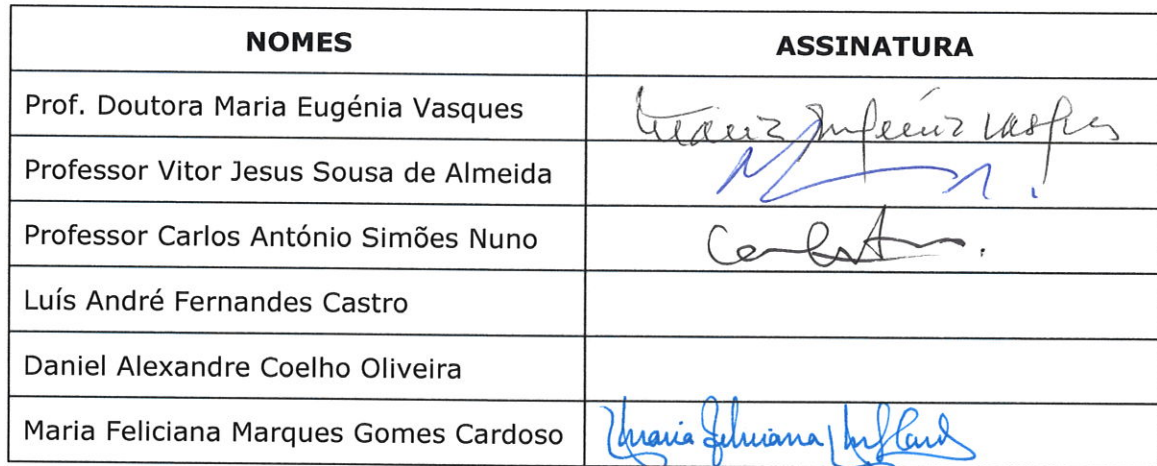 NOMES ASSINATURA
Prof. Doutora Maria Eugénia Vasques Maria Eugénia Vasques
Professor Vitor Jesus Sousa de Almeida
Professor Carlos António Simões Nuno
Luís André Fernandes Castro
Daniel Alexandre Coelho Oliveira
Maria Feliciana Marques Gomes Cardoso Maria Feliciana